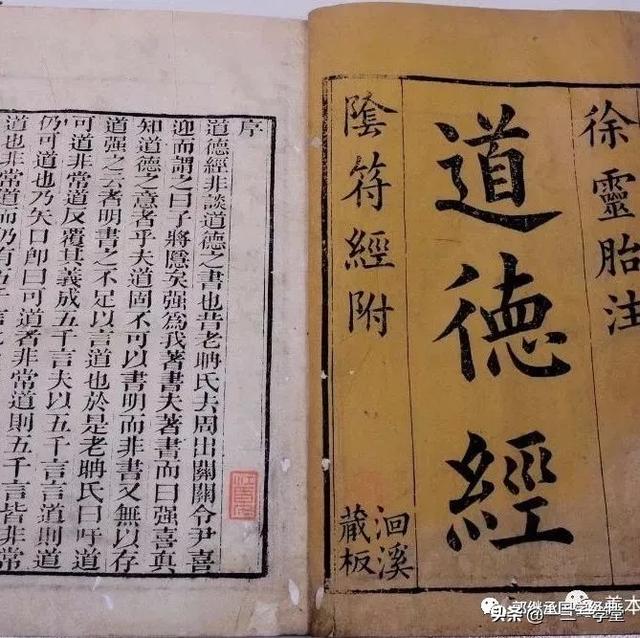 徐靈胎注
道德經
隂符經附
洄溪
藏板
序
道德經非談道德之書也昔老聃氏去周出關關令尹喜
迎而謂之曰子將隱矣强為我著書夫著書而曰强喜真
知道德之意者乎夫道固不可以書明而非書又無以存
道强之云者明書之不足以言道也於是老聃氏曰吁道
可道非常道反覆其義成五千言夫以五千言言道則道
仍可道也乃矢口即曰可道者非常道則五千言皆非常
道也非常道而仍有五千言
善本
头条
学堂